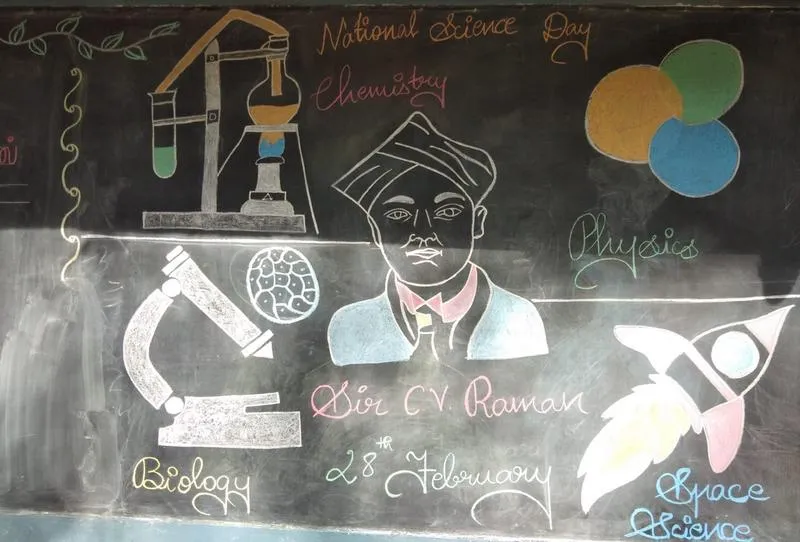 National Science Day
Chemistry
Physics
Sir CV. Raman
28th February
Biology
Space
Science